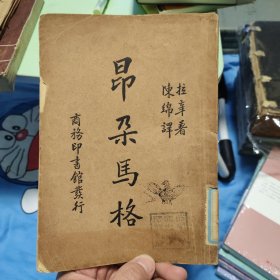 拉辛著
陳綿譯
昂朶馬格
商務印書館發行